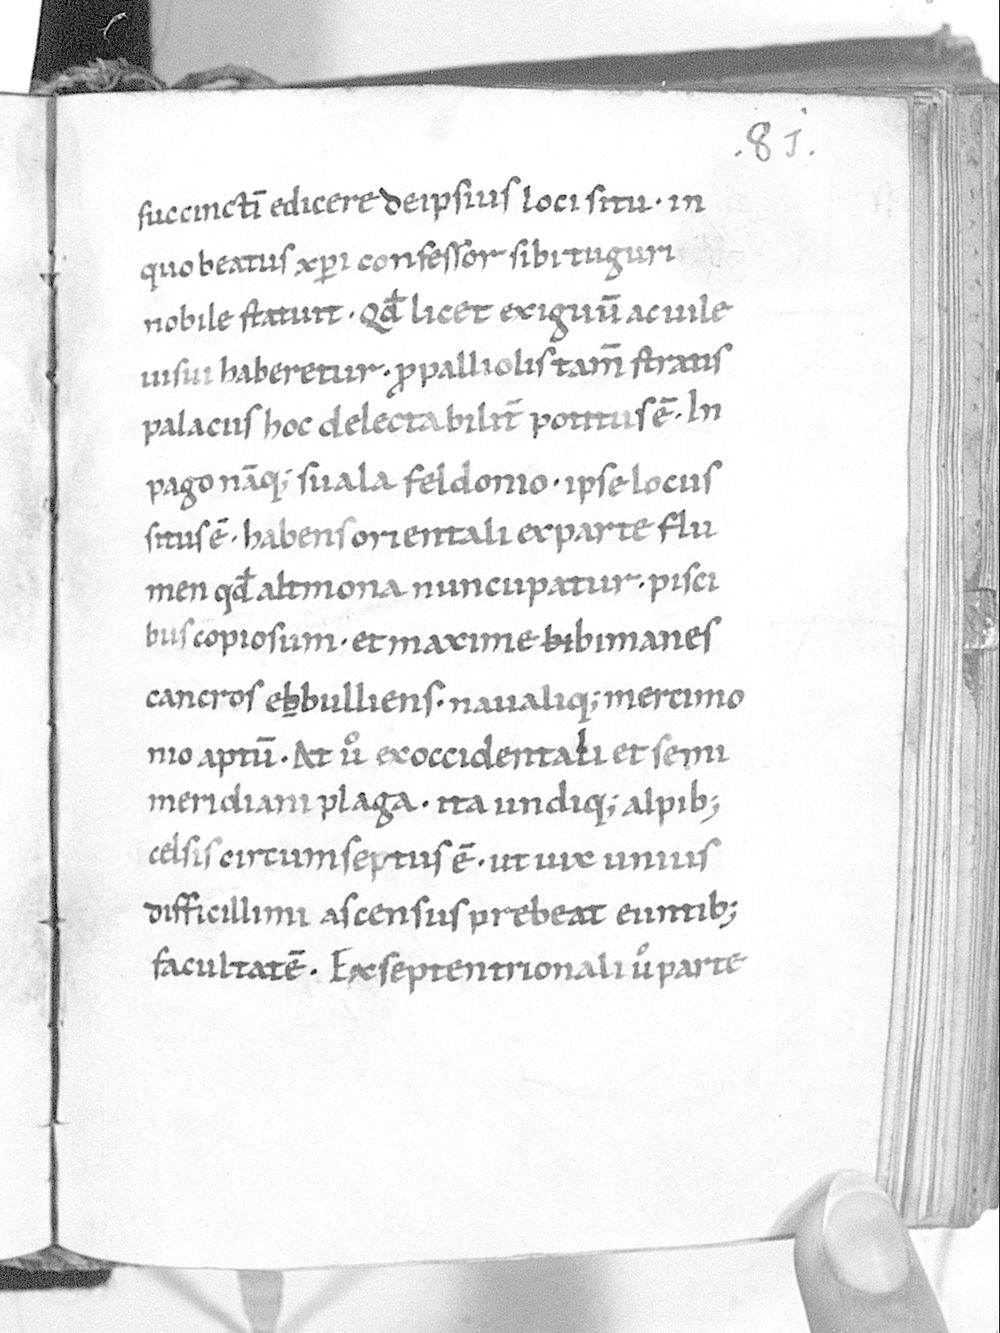 .81.
succinctī edicere de ipsius loci situ · in
quo beatus xp̄i confessor sibi tuguri
nobile statuit · Qđ licet exiguū ac uile
uisui haberetur · ꝓ palliolis tam̄ stratis
palacus hoc delectabilit̄ potitus ē · In
pago nāq; suala feldonio · ipse locus
situs ē · habens orientali ex parte flu
men qđ altmona nuncupatur · pisci
bus copiosum · et maxime bibimanes
cancros ebbulliens · naualiq; mercimo
nio aptū · At ů ex occidentali et semi
meridiani plaga · ita undiq; alpib;
celsis circumseptus ē · ut uix unius
difficillimi ascensus prebeat euntib;
facultatē · Ex septentrionali ů parte